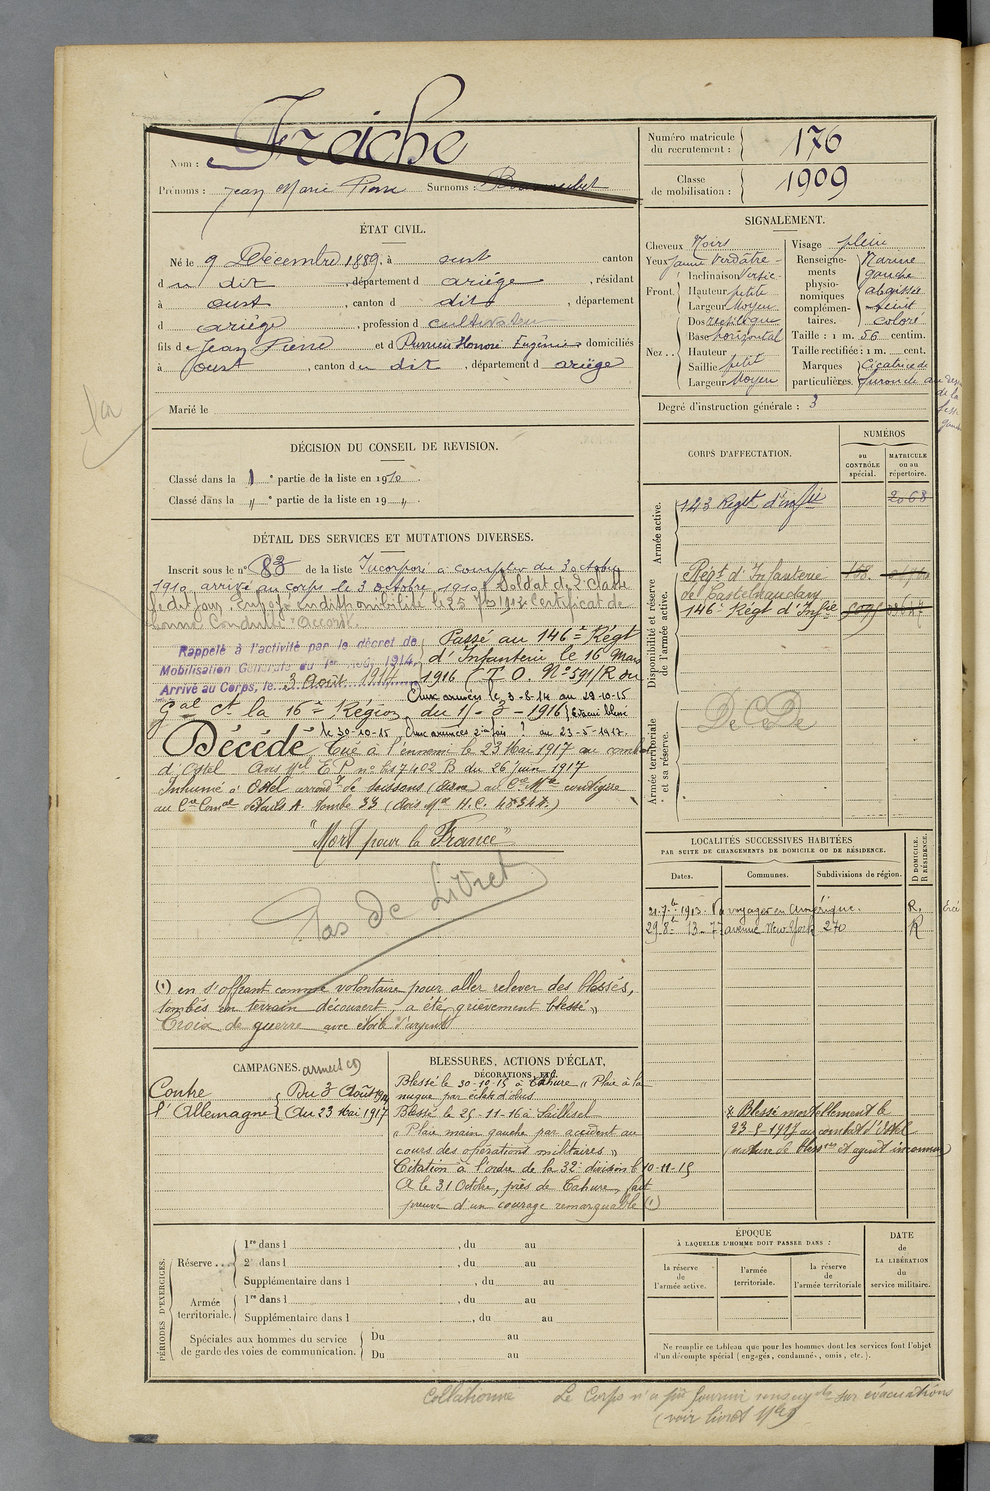 Nom : Fraiche
Prénoms : Jean Marie Pierre Surnoms :
Numéro matricule du recrutement : 176
Classe de mobilisation : 1909
ÉTAT CIVIL.
Né le 9 Décembre 1889, à oust canton
du dit, département d ariége, résidant
à oust, canton d dit, département
d ariége, profession d cultivateur
fils de Jean Pierre et d Honoré Eugénie domiciliés
à oust, canton du dit, département d ariége
Marié le
SIGNALEMENT.
Cheveux Noirs
Yeux jaune verdâtre
Front. Inclinaison Vertic.
Hauteur petite
Largeur Moyen
Nez Dos rectiligne
Base horizontal
Hauteur
Saillie petit
Largeur Moyen
Visage plein
Renseignements physionomiques complémentaires. Narine gauche abaissée teint coloré
Taille : 1 m. 56 centim.
Taille rectifiée : 1 m. cent.
Marques particulières. Cicatrice de furoncle au
Degré d'instruction générale : 3
DÉCISION DU CONSEIL DE REVISION.
Classé dans la 1e partie de la liste en 1910.
Classé dans la " e partie de la liste en 19 ".
CORPS D'AFFECTATION.
NUMÉROS
au CONTRÔLE spécial.
MATRICULE ou au répertoire.
Armée active.
143 Régt d'Infie 2068
Disponibilité et réserve de l'armée active.
Régt d'Infanterie de Castelnaudary 168
146e Régt d'Infie
Armée territoriale et sa réserve.
DeCeDe
DÉTAIL DES SERVICES ET MUTATIONS DIVERSES.
Inscrit sous le n° 83 de la liste Incorporé à compter du 3 octobre
1910 arrivé au corps le 3 octobre 1910 Soldat de 2e classe
ledit jour. Envoyé en disponibilité le 25 7bre 1912 Certificat de
bonne Conduite "Accordé".
Rappelé à l'activité par le décret de
Mobilisation Générale du 1er Août 1914.
Arrivé au Corps, le 3 Août 1914
Passé au 146e Régt
d'Infanterie le 16 Mars
1916 (T. O. N° 591/R du
Gal Ct la 16e Région du 15-3-1916)
Aux armées le 3-8-14 au 29-10-15
Evacué blessé le 30-10-15, Aux armées 2e fois ? au 23-5-1917.
Décédé Tué à l'ennemi le 23 Mai 1917 au combat
d'Ostel Avis mel E.P. n° bs 7402 B du 26 juin 1917
Inhumé à Ostel arrondt de soissons (aisne) au Cre Mre contigüe
au Cre Comal tombe 33 (
"Mort pour la France"
Pas de Livret
(1) en s'offrant comme volontaire pour aller relever des blessés,
tombés en terrain découvert, a été grièvement blessé "
Croix de guerre avec étoile d'argent
LOCALITÉS SUCCESSIVES HABITÉES
PAR SUITE DE CHANGEMENTS DE DOMICILE OU DE RÉSIDENCE.
Dates. Communes. Subdivisions de région. D DOMICILE. R RÉSIDENCE.
21-7-1913 voyager en Amérique. R.
29 8 13 avenue New-York 270 R
CAMPAGNES.
Contre l'Allemagne
Du 3 Août 1914
Au 23 Mai 1917
BLESSURES, ACTIONS D'ÉCLAT, DÉCORATIONS, ETC.
Blessé le 30-10-15 à Tahure "Plaie à la
nuque par éclats d'obus
Blessé le 25-11-16 à Saillisel
"Plaie main gauche par accident au
cours des opérations militaires "
Citation à l'ordre de la 32e division le 10-11-15
A le 31 Octobre, près de Tahure, fait
preuve d'un courage remarquable (1)
Blessé mortellement le
23-5-1917 au combat d'Ostel
(nature de blessres et agent inconnus)
PÉRIODES D'EXERCICES.
Réserve
1re dans l , du au
2e dans l , du au
Supplémentaire dans l , du au
Armée territoriale.
1re dans l , du au
Supplémentaire dans l , du au
Spéciales aux hommes du service de garde des voies de communication.
Du au
Du au
ÉPOQUE
À LAQUELLE L'HOMME DOIT PASSER DANS :
la réserve de l'armée active.
l'armée territoriale.
la réserve de l'armée territoriale
DATE de LA LIBÉRATION du service militaire.
Ne remplir ce tableau que pour les hommes dont les services font l'objet
d'un décompte spécial (engagés, condamnés, omis, etc.).
Collationné Le Corps n'a pu fournir renseigts sur évacuations
(voir livret